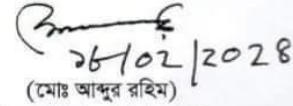 ২৮/০২/2028
(মোঃ আব্দুর রহিম)